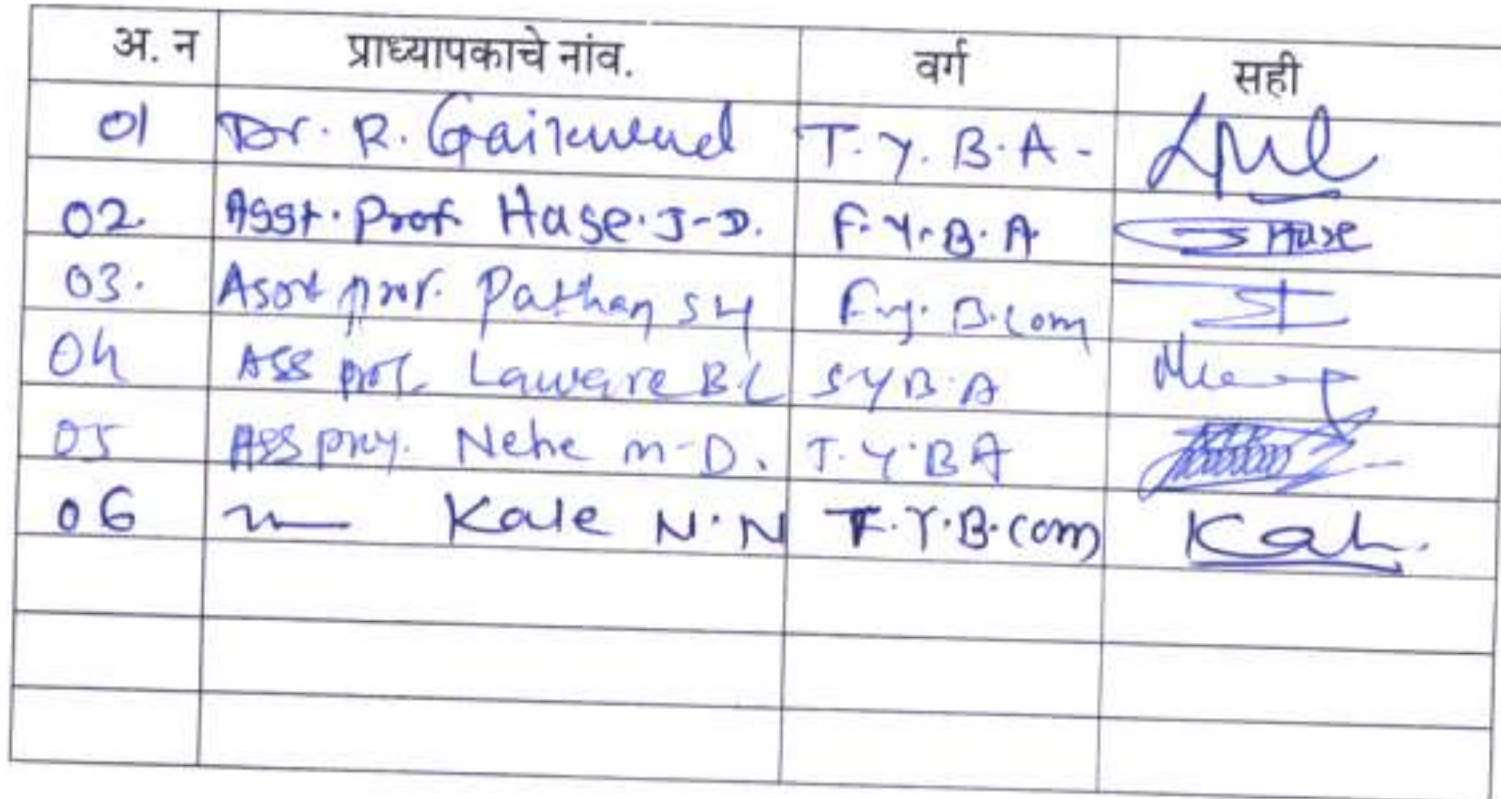 अ. न प्राध्यापकाचे नांव. वर्ग सही
01 Dr. R. Gaikwad T.Y.B.A-
02. Asst. Prof. Hase.J-D. F.Y.B.A Hase
03. Pathan SY F.Y. B.Com
04 Ass prof. Laware B.L S Y B.A
05 Ass Nehe M-D. T.Y.B A
06 Kale N.N F.Y.B.Com Kale.